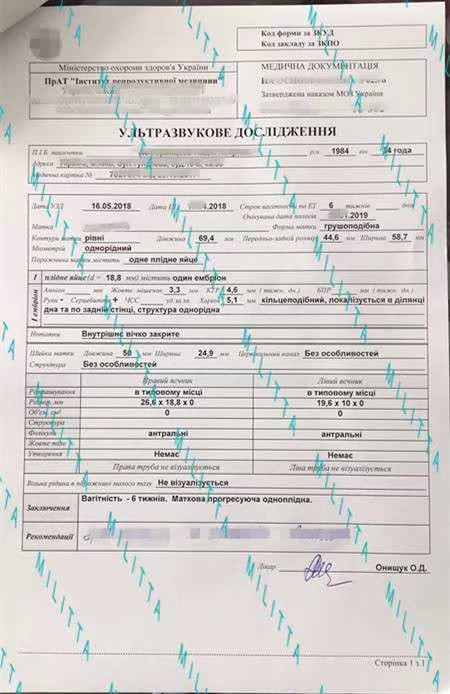 Код форми за ЗКУД
Код закладу за ЗКПО
Міністерство охорони здоров'я України
ПрАТ "Інститут репродуктивної медицини"
МЕДИЧНА ДОКУМЕНТАЦІЯ
Затверджена наказом МОЗ України
УЛЬТРАЗВУКОВЕ ДОСЛІДЖЕННЯ
П.І.Б. пацієнтки р.н. 1984 вік 34 года
Адреса
Медична картка №
Дата УЗД 16.05.2018 Дата .2018 Строк вагітності по ЕТ 6 тижнів днів
Очікувана дата пологів .2019
Матка Форма матки грушоподібна
Контури матки рівні Довжина 69,4 мм Передньо-задній розмір 44,6 мм Ширина 58,7 мм
Міометрій однорідний
Порожнина матки містить одне плідне яйце
І плідне яйце (d = 18,8 мм) містить один ембріон
І ембріон
Амніон мм Жовтк. мішечок 3,3 мм КТР 4,6 мм ( тижн. дн.) БПР мм ( тижн. дн.)
Рухи - Серцебиття + ЧСС уд.за хв. Хоріон 5,1 мм кільцеподібний, локалізується в ділянці
дна та по задній стінці, структура однорідна
Нотатки Внутрішнє вічко закрите
Шийка матки Довжина 50 мм Ширина 24,9 мм Цервікальний канал Без особливостей
Структура Без особливостей
Правий яєчник Лівий яєчник
Розташування в типовому місці в типовому місці
Розмір, мм 26,6 x 18,8 x 0 19,6 x 10 x 0
Об'єм, см³ 0 0
Структура
Фолікули антральні антральні
Жовте тіло
Утворення Немає Немає
Права труба не візуалізується Ліва труба не візуалізується
Вільна рідина в порожнині малого тазу Не візуалізується
Заключення Вагітність - 6 тижнів. Маткова прогресуюча одноплідна.
Рекомендації
Лікар Онищук О.Д.
Сторінка 1 з 1
MILITTA